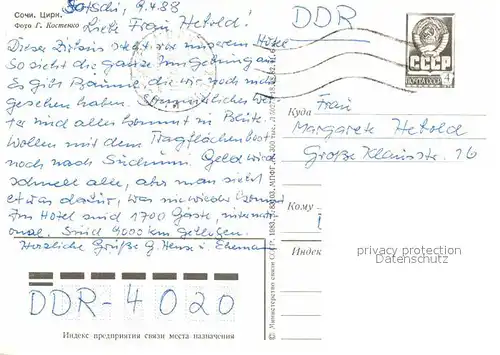 Сочи. Цирк.
Фото Г. Костенко
Sotschi, 9.4.88
Liebe Frau Hetold!
Dieser Zirkus steht vor unserem Hotel
So sieht die ganze Umgebung aus.
Es gibt Bäume die wir noch nicht
gesehen haben. Wetter
und alles kommt in Blüte.
Wollen mit dem Tragflächenboot
noch nach Suchumi. Geld wird
schnell alle, aber man sieht
etwas dafür, was nie wieder kommt
Im Hotel sind 1700 Gäste, international.
Sind 9000 km geflogen.
Herzliche Grüße G. u. Ehemann
DDR-4020
Индекс предприятия связи места назначения
© Министерство связи СССР. 1983.
DDR
СССР
ПОЧТА
4
Куда
Frau
Margarete Hetold
Große Klausstr. 16
Кому
Индекс
privacy protection
Datenschutz